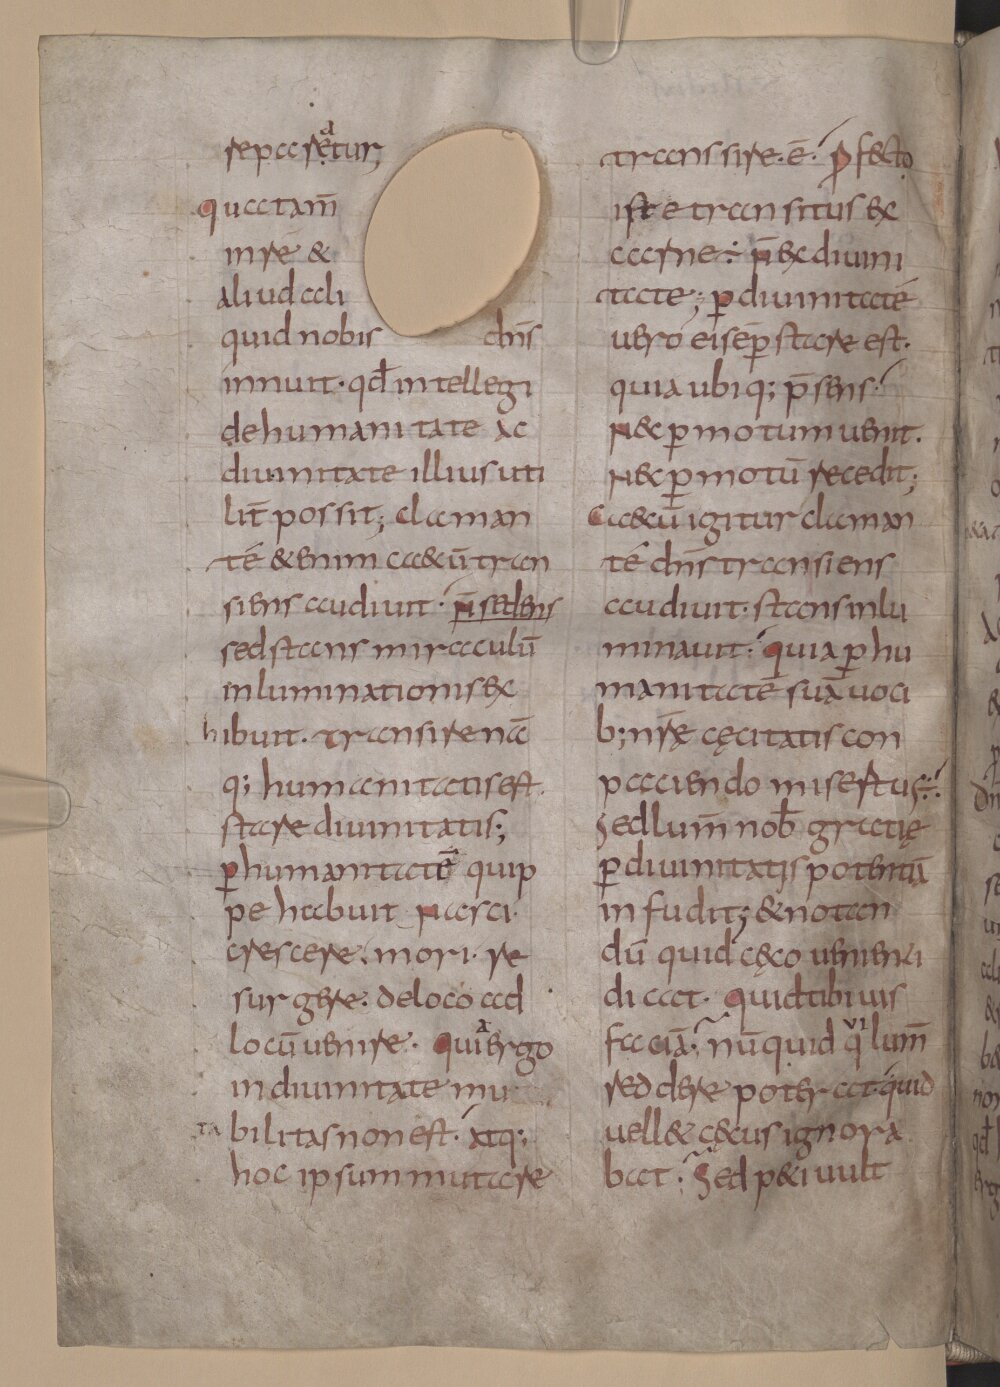 reparetur;
quia tam̄
in re &
aliud ali
quid nobis dn̄s
innuit· qd̄ intellegi
de humanitate ac
diuinitate illius uti
lit̄ possit; Claman
tē &enim caecū tran
siens audiuit· n̄ sedens
sed stans miraculū
inluminationis ex
hibuit. Transire nā
q; humanitatis est.
stare diuinitatis;
p̱ humanitatē quip
pe habuit nasci·
crescere· mori· re
surgere· de loco ad
locū uenire· Quia ergo
in diuinitate mu
ta bilitas non est· Atq;
hoc ipsum mutare
transire· ē· ꝓfecto
iste transitus ex
carne· n̄ ex diuini
tate; p̱ diuinitatē
uero ei semp̱ stare est·
quia ubiq; p̄sens·
Nec p̱ motum uenit·
Nec p̱ motū recedit;
Caecū igitur claman
tē dn̄s transiens
audiuit· stans inlu
minauit· Quia p̱ hu
manitatē suā uoci
b; nrę̄ cęcitatis con
paciendo misertus·
Sed lum̄ nob̄ gratię
p̱ diuinitatis potentiā
in fudit; & notan
dū quid cęco uenienti
dicat· Quid tibi uis
faciā· nūquid qui lum̄
reddere poterat quid
uellet cęcus ignora
bat· Sed peti uult